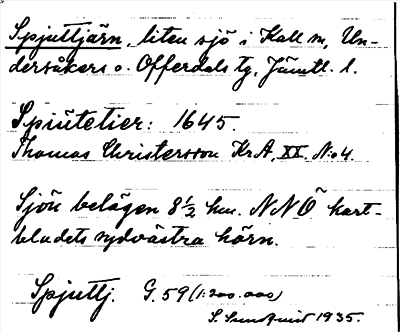 Spjuttjärn, liten sjö i Kall sn, Un-
dersåkers o. Offerdals tg, Jämtl. l.
Spiutetier: 1645.
Thomas Christersson KrA, XX. No 4.
Sjön belägen 8½ km. NNÖ kart-
bladets sydvästra hörn.
Spjuttj. G. 59 (1:200.000)
S. Sundquist 1935.